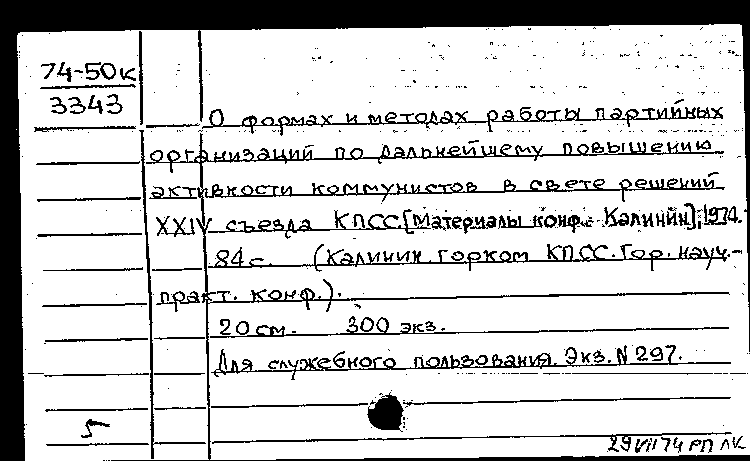 74-50к
3343
О формах и методах работы партийных
организаций по дальнейшему повышению
активности коммунистов в свете решений
XXIV съезда КПСС. [Материалы конф. Калинин], 1974.
84 с. (Калинин. горком КПСС. Гор. науч.-
практ. конф.).
20 см. 300 экз.
Для служебного пользования. Экз. N 297.
29 VII 74 РП ЛК